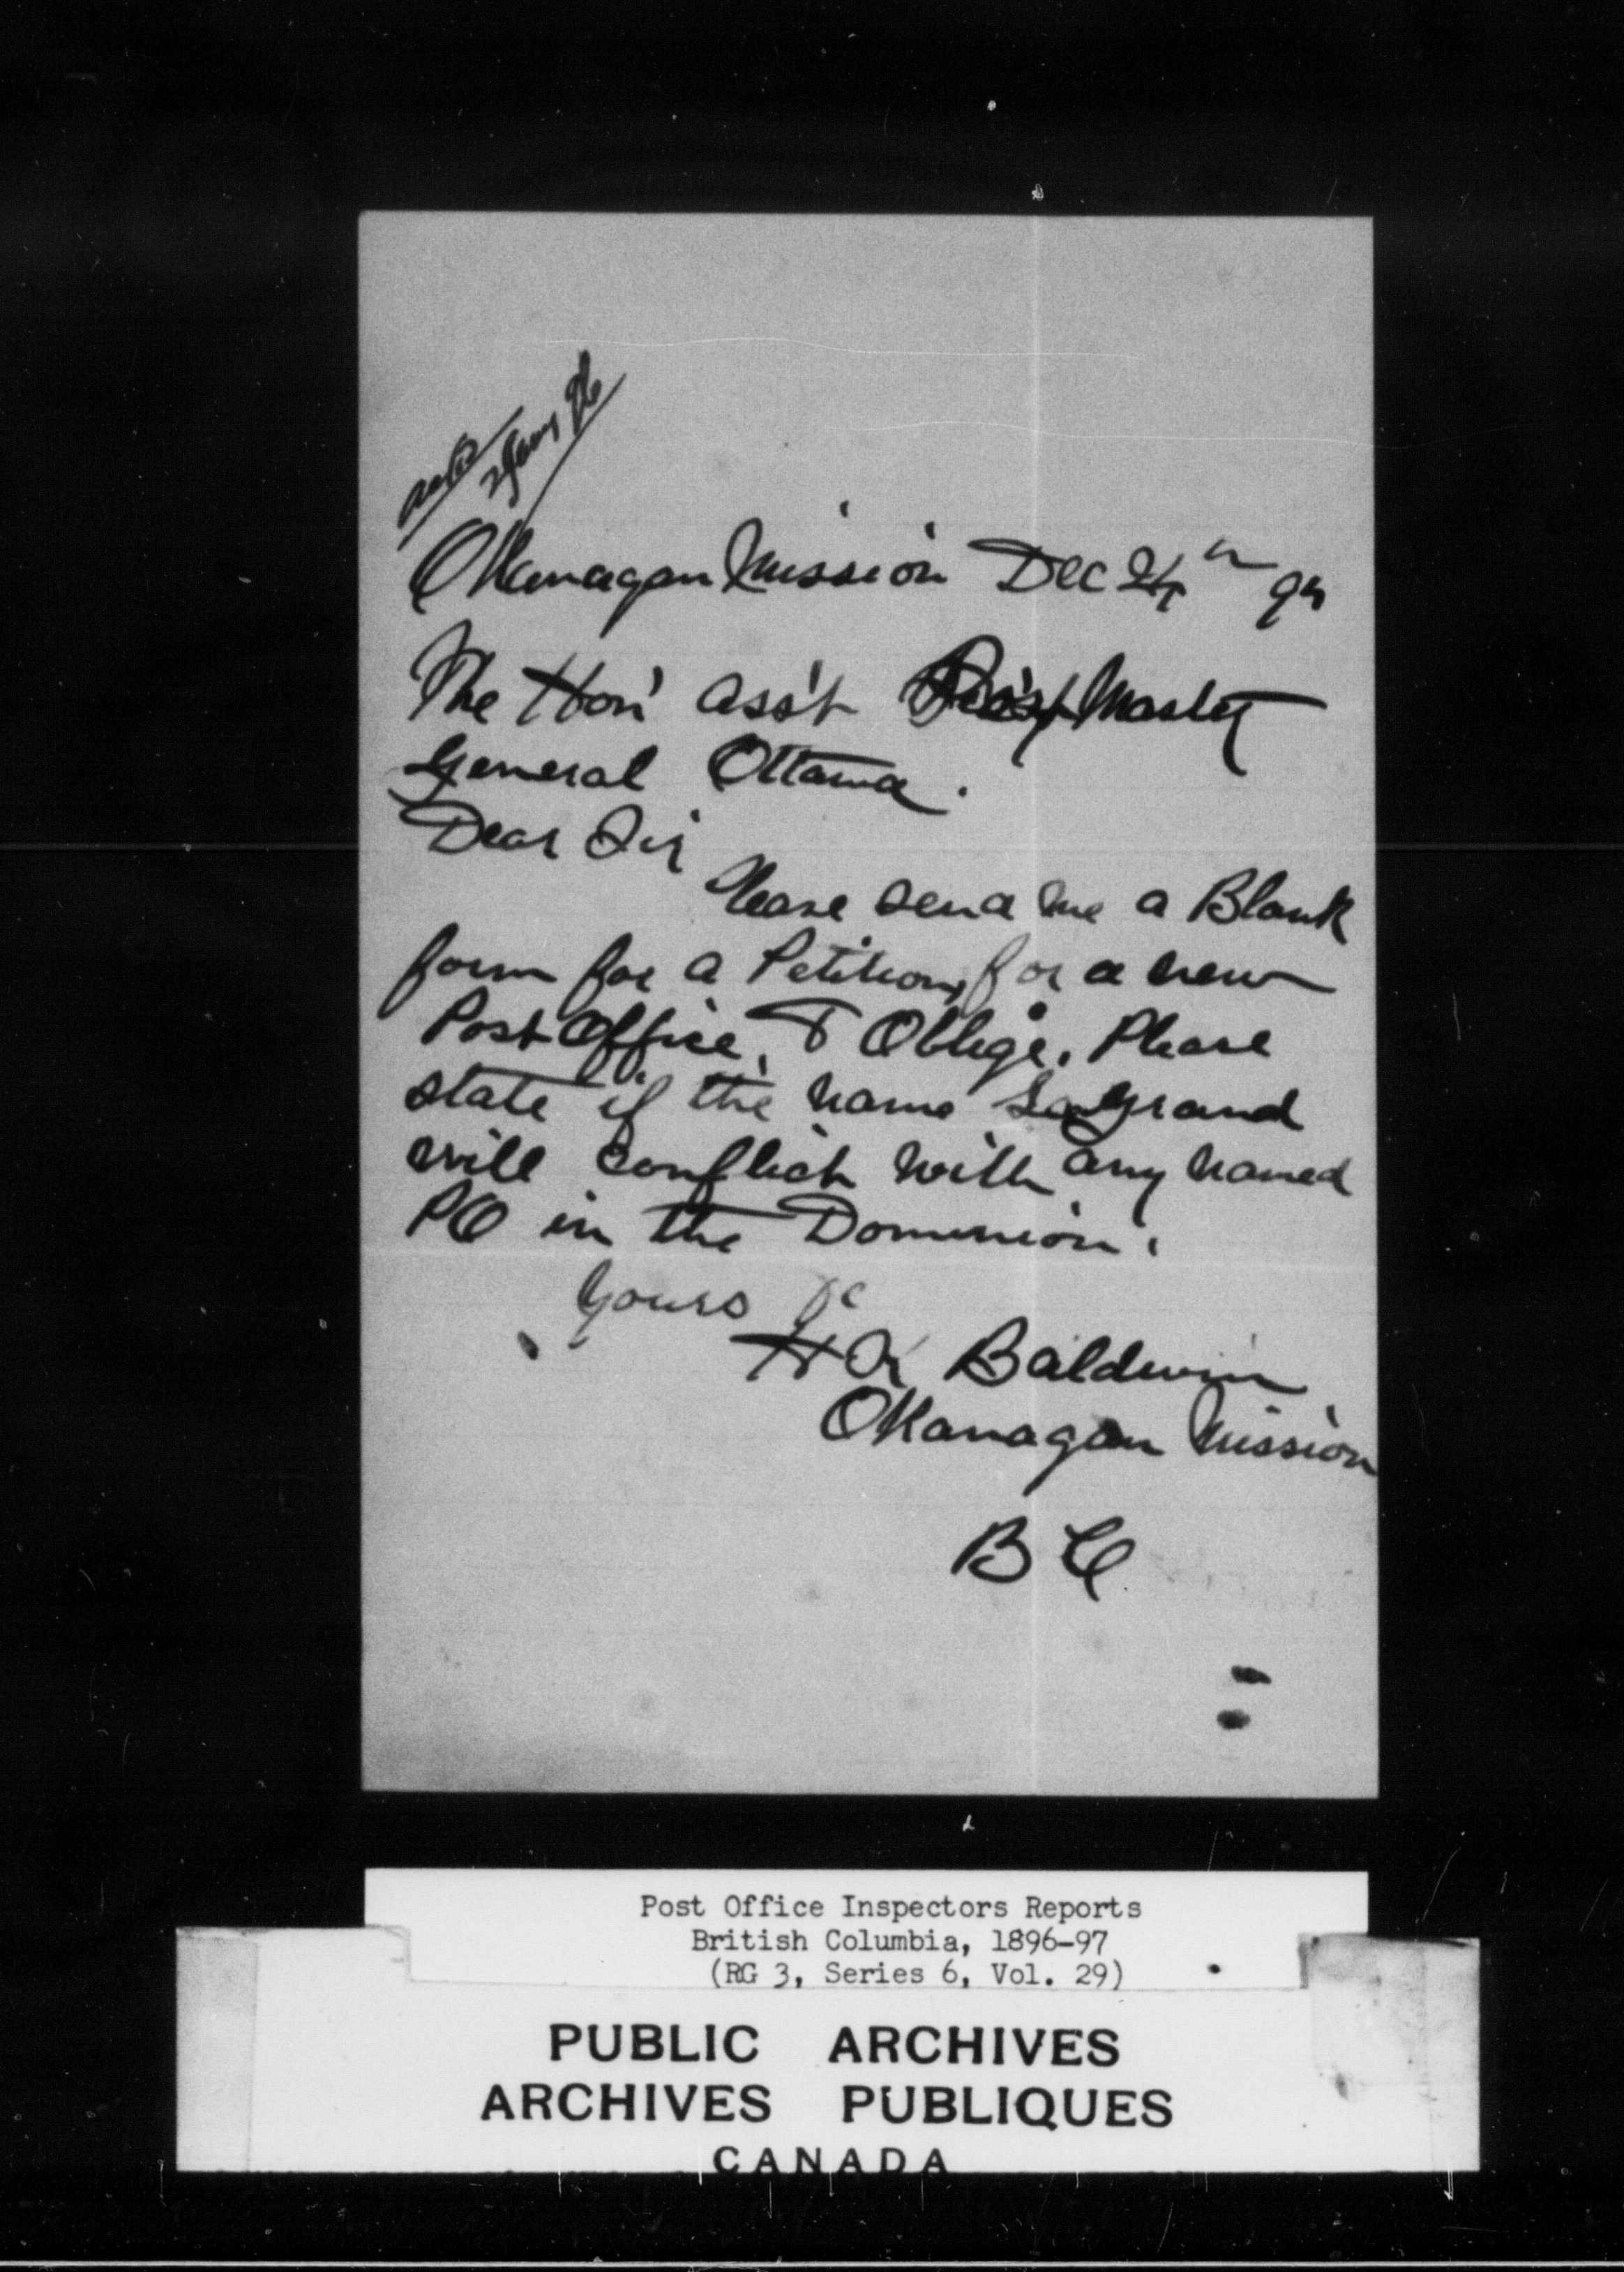 Okanagan Mission Dec 24th 95
The Hon' ass't Post Master
General Ottawa.
Dear Sir
Please send me a Blank
form for a Petition, for a new
Post Office, & Oblige. Please
state if the name LeGrand
will conflict with any named
PO in the Dominion.
Yours &c
H K Baldwin
Okanagan Mission
B C
Post Office Inspectors Reports
British Columbia, 1896-97
(RG 3, Series 6, Vol. 29)
PUBLIC ARCHIVES
ARCHIVES PUBLIQUES
CANADA